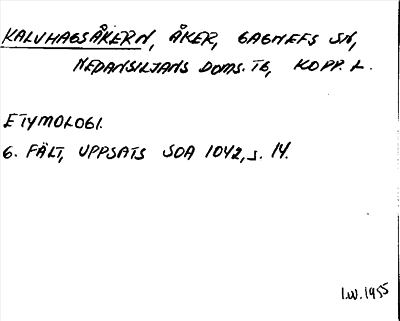 KALVHAGSÅKERN, ÅKER, GAGNEFS SN,
NEDANSILJANS DOMS. TG, KOPP. L.
ETYMOLOGI.
G. FÄLT, UPPSATS SOA 1042, s. 14.
I.W. 1955